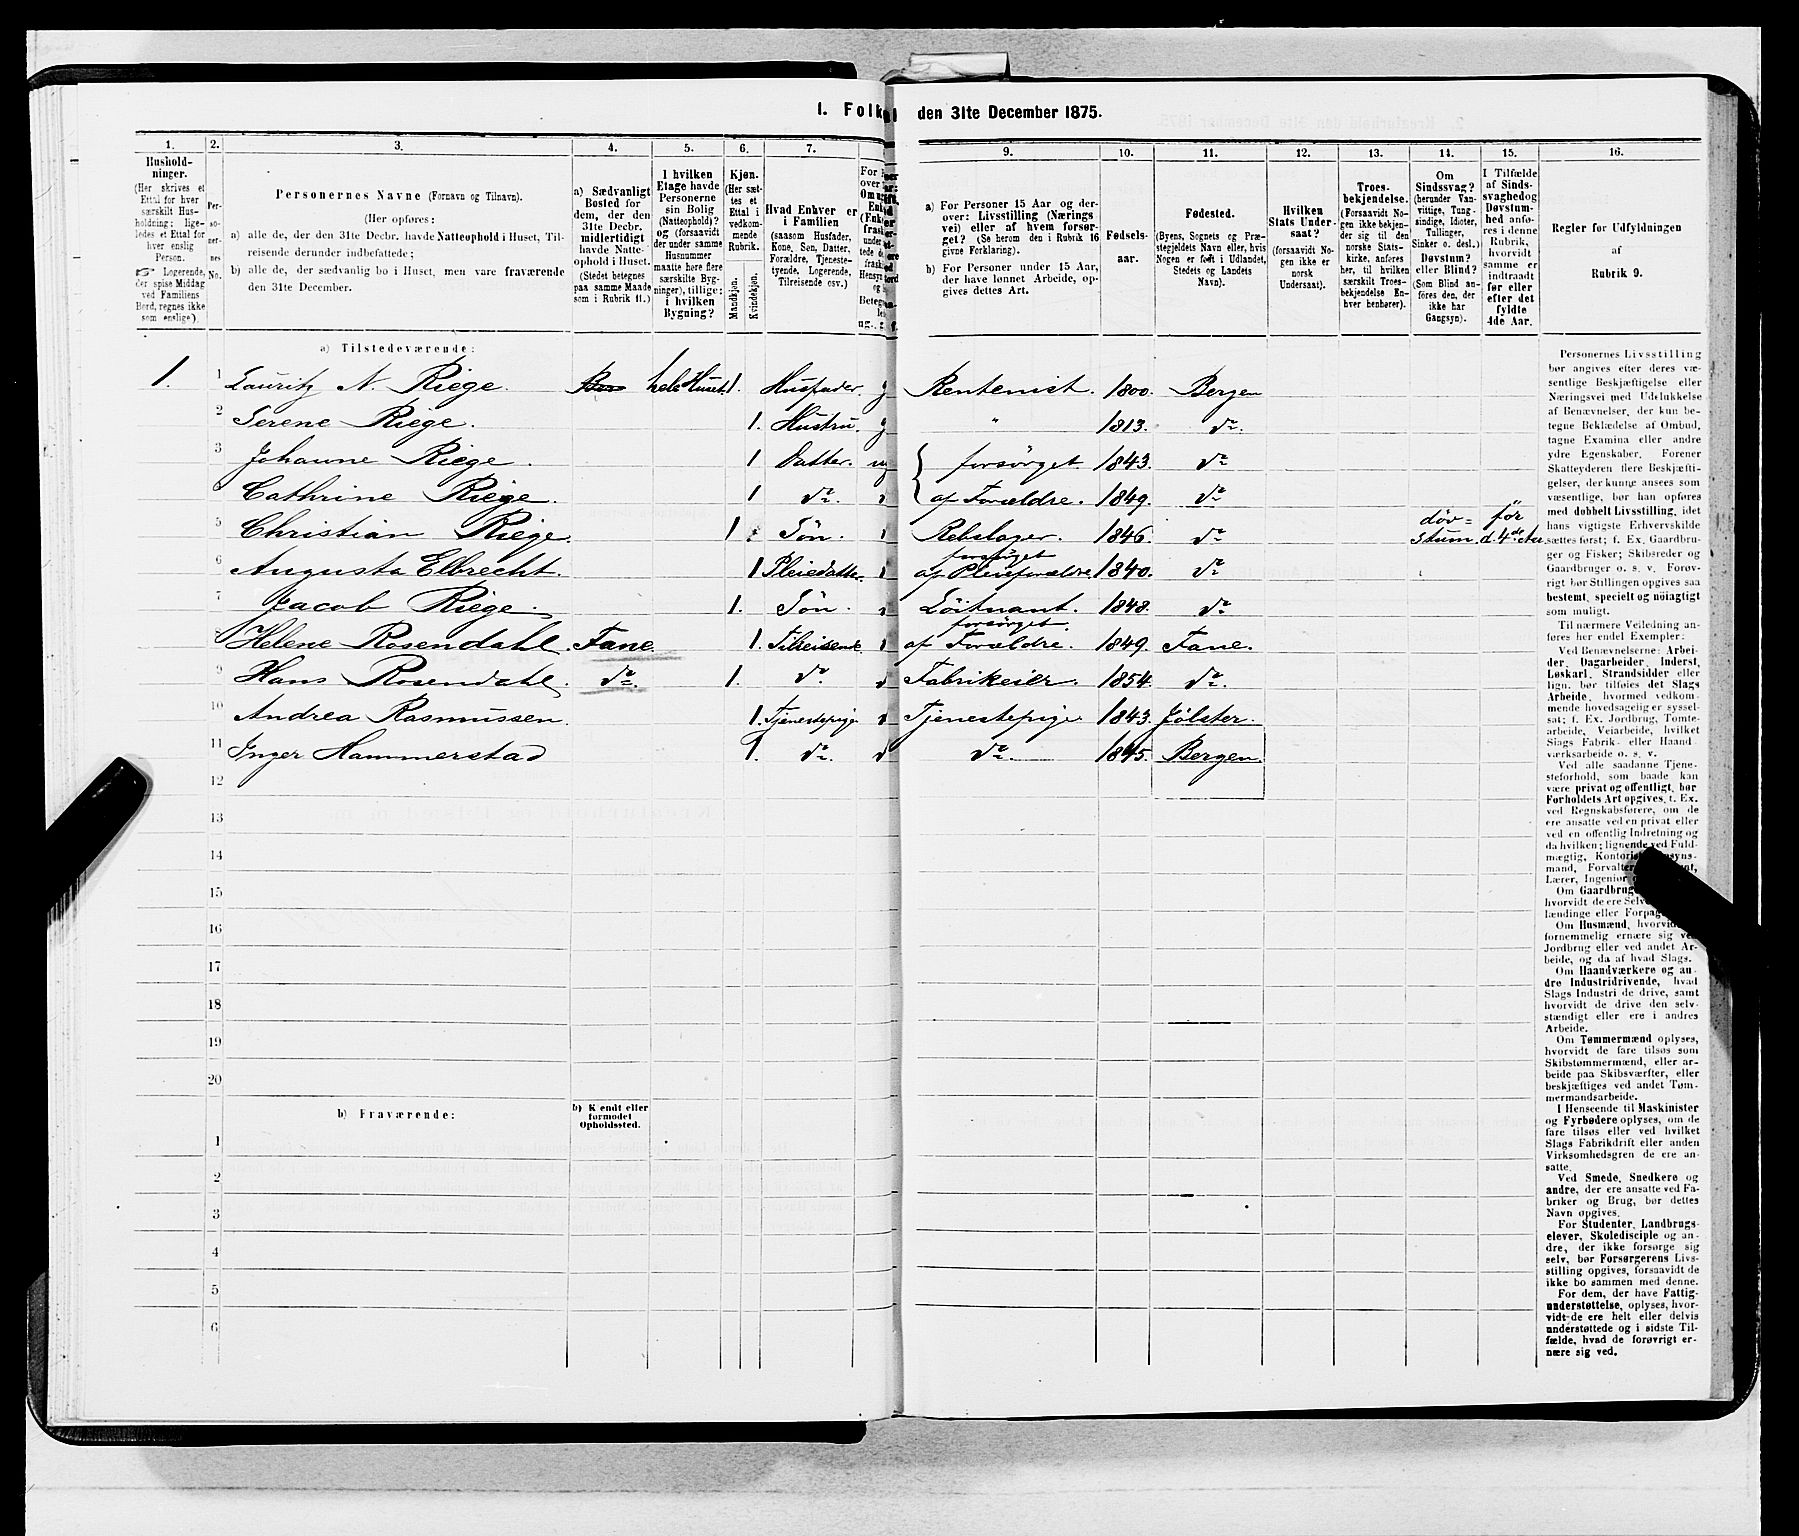 1. Folk den 31te December 1875.
1. 2. 3. 4. 5. 6. 7. 9. 10. 11. 12. 13. 14. 15. 16.
Hushold-
ninger.
(Her skrives et
Ettal for hver
særskilt Hus-
holdning; lige-
ledes et Ettal for
hver enslig
Person.
☞ Logerende,
der spise Middag
ved Familiens
Bord, regnes ikke
som enslige).
Per-
so-
ner-
nes
No.
Personernes Navne (Fornavn og Tilnavn).
(Her opføres:
a) alle de, der den 31te Decbr. havde Natteophold i Huset, Til-
reisende derunder indbefattede;
b) alle de, der sædvanlig bo i Huset, men vare fraværende
den 31te December.
a) Sædvanligt
Bosted for
dem, der den
31te Decbr.
midlertidigt
havde Natte-
ophold i Huset.
(Stedet betegnes
paa samme Maade
som i Rubrik 11.)
I hvilken
Etage havde
Personerne
sin Bolig
(Natteophold)?
og (forsaavidt
der under samme
Husnummer
maatte høre flere
særskilte Byg-
ninger), tillige:
i hvilken
Bygning?
Kjøn.
(Her sæt-
tes et
Ettal i
vedkom-
mende
Rubrik.
Mandkjøn.
Kvindekjøn.
Hvad Enhver er
i Familien
(saasom Husfader,
Kone, Søn, Datter,
Forældre, Tjeneste-
tyende, Logerende,
Tilreisende osv.)
a) For Personer 15 Aar og der-
over: Livsstilling (Nærings
vei) eller af hvem forsør-
get? (Se herom den i Rubrik 16
givne Forklaring).
b) For Personer under 15 Aar,
der have lønnet Arbeide, op-
gives dettes Art.
Fødsels-
aar.
Fødested.
(Byens, Sognets og Præ-
stegjeldets Navn eller, hvis
Nogen er født i Udlandet,
Stedets og Landets
Navn).
Hvilken
Stats Under-
saat?
(forsaavidt No-
gen ikke er
norsk
Undersaat).
Troes-
bekjendelse.
(Forsaavidt No-
gen ikke bekjen-
der sig til den
norske Stats-
kirke, anføres
her, til hvilken
særskilt Troes-
bekjendelse En-
hver henhører).
Om
Sindssvag?
(herunder Van-
vittige, Tung-
sindige, Idioter,
Tullinger,
Sinker o. desl.)
Døvstum?
eller Blind?
(Som Blind an-
føres den, der
ikke har
Gangsyn).
I Tilfælde
af Sinds-
svaghed og
Døvstum-
hed anfø-
res i denne
Rubrik,
hvorvidt
samme er
indtraadt
før eller
efter det
fyldte
4de Aar.
Regler for Udfyldningen
af
Rubrik 9.
a) Tilstedeværende:
1. 1 Lauritz N. Riege. hele Huset. 1. Husfader. g Rentenist. 1800. Bergen
2 Serene Riege. 1. Hustru. g " 1813. do.
3 Johanne Riege. 1 Datter. ug forsørget 1843. do
4 Cathrine Riege. 1 do. af Forældre. 1849. do
5 Christian Riege. 1 Søn. Rebslager. 1846. do døv=stum. før d. 4de Aar.
6 Augusta Elbrecht. 1 Pleiedatter. forsørget af Pleieforældre. 1840. do
7 Jacob Riege. 1. Søn. Løitnant. 1848. do
8 Helene Rosendahl. Fane. 1. Tilreisende forsørget af Forældre. 1849. Fane.
9 Hans Rosendahl. do. 1. do. Fabrikeier. 1854. do.
10 Andrea Rasmussen. 1. Tjenestepige Tjenestepige 1843. Jølster.
11 Inger Hammerstad 1. do. do. 1845. Bergen.
12
13
14
15
16
17
18
19
20
b) Fraværende: b) Kjendt eller
formodet
Opholdssted.
1
2
3
4
5
6
Personernes Livsstilling
bør angives efter deres væ-
sentlige Beskjæftigelse eller
Næringsvei med Udelukkelse
af Benævnelser, der kun be-
tegne Beklædelse af Ombud,
tagne Examina eller andre
ydre Egenskaber. Forener
Skatteyderen flere Beskjæfti-
gelser, der kunne ansees som
væsentlige, bør han opføres
med dobbelt Livsstilling, idet
hans vigtigste Erhvervskilde
sættes først; f. Ex. Gaardbru-
ger og Fisker; Skibsreder og
Gaardbruger o. s. v. Forøv-
rigt bør Stillingen opgives saa
bestemt, specielt og nöiagtigt
som muligt.
Til nærmere Veiledning an-
føres her endel Exempler:
Ved Benævnelserne: Arbei-
der, Dagarbeider, Inderst,
Løskarl, Strandsidder eller
lign. bør tilføies det Slags
Arbeide, hvormed vedkom-
mende hovedsagelig er syssel-
sat; f. Ex. Jordbrug, Tomte-
arbeide, Veiarbeide, hvilket
Slags Fabrik- eller Haand-
værksarbeide o. s. v.
Ved alle saadanne Tjene-
steforhold, som baade kan
være privat og offentligt, bør
Forholdets Art opgives, t. Ex.
ved Regnskabsførere, om de
ere ansatte ved en privat eller
ved en offentlig Indretning og
da hvilken; lignende ved Fuld-
mægtig,
mand,
Lærer, Ingeniør
Om
hvorvidt de ere
lændinge eller
Om Husmænd,
fornemmelig ernære sig
Jordbrug eller ved andet Ar-
beide, og da af hvad Slags.
Om Haandværkere og an-
dre Industridrivende, hvad
Slags Industri de drive, samt
hvorvidt de drive den selv-
stændigt eller ere i andres
Arbeide.
Om Tømmermænd oplyses,
hvorvidt de fare tilsøs som
Skibstømmermænd, eller ar-
beide paa Skibsværfter, eller
beskjæftiges ved andet Tøm-
mermandsarbeide.
I Henseende til Maskinister
og Fyrbødere oplyses, om de
fare tilsøs eller ved hvilket
Slags Fabrikdrift eller anden
Virksomhedsgren de ere an-
satte.
Ved Smede, Snedkere og
andre, der ere ansatte ved Fa-
briker og Brug, bør dettes
Navn opgives.
For Studenter, Landbrugs-
elever, Skoledisciple og an-
dre, der ikke forsørge sig
selv, bør Forsørgerens Livs-
stilling opgives, forsaavidt de
ikke bo sammen med denne.
For dem, der have Fattig-
understøttelse, oplyses, hvor-
vidt de ere helt eller delvis
understøttede og i sidste Til-
fælde, hvad de forøvrigt er-
nære sig ved.